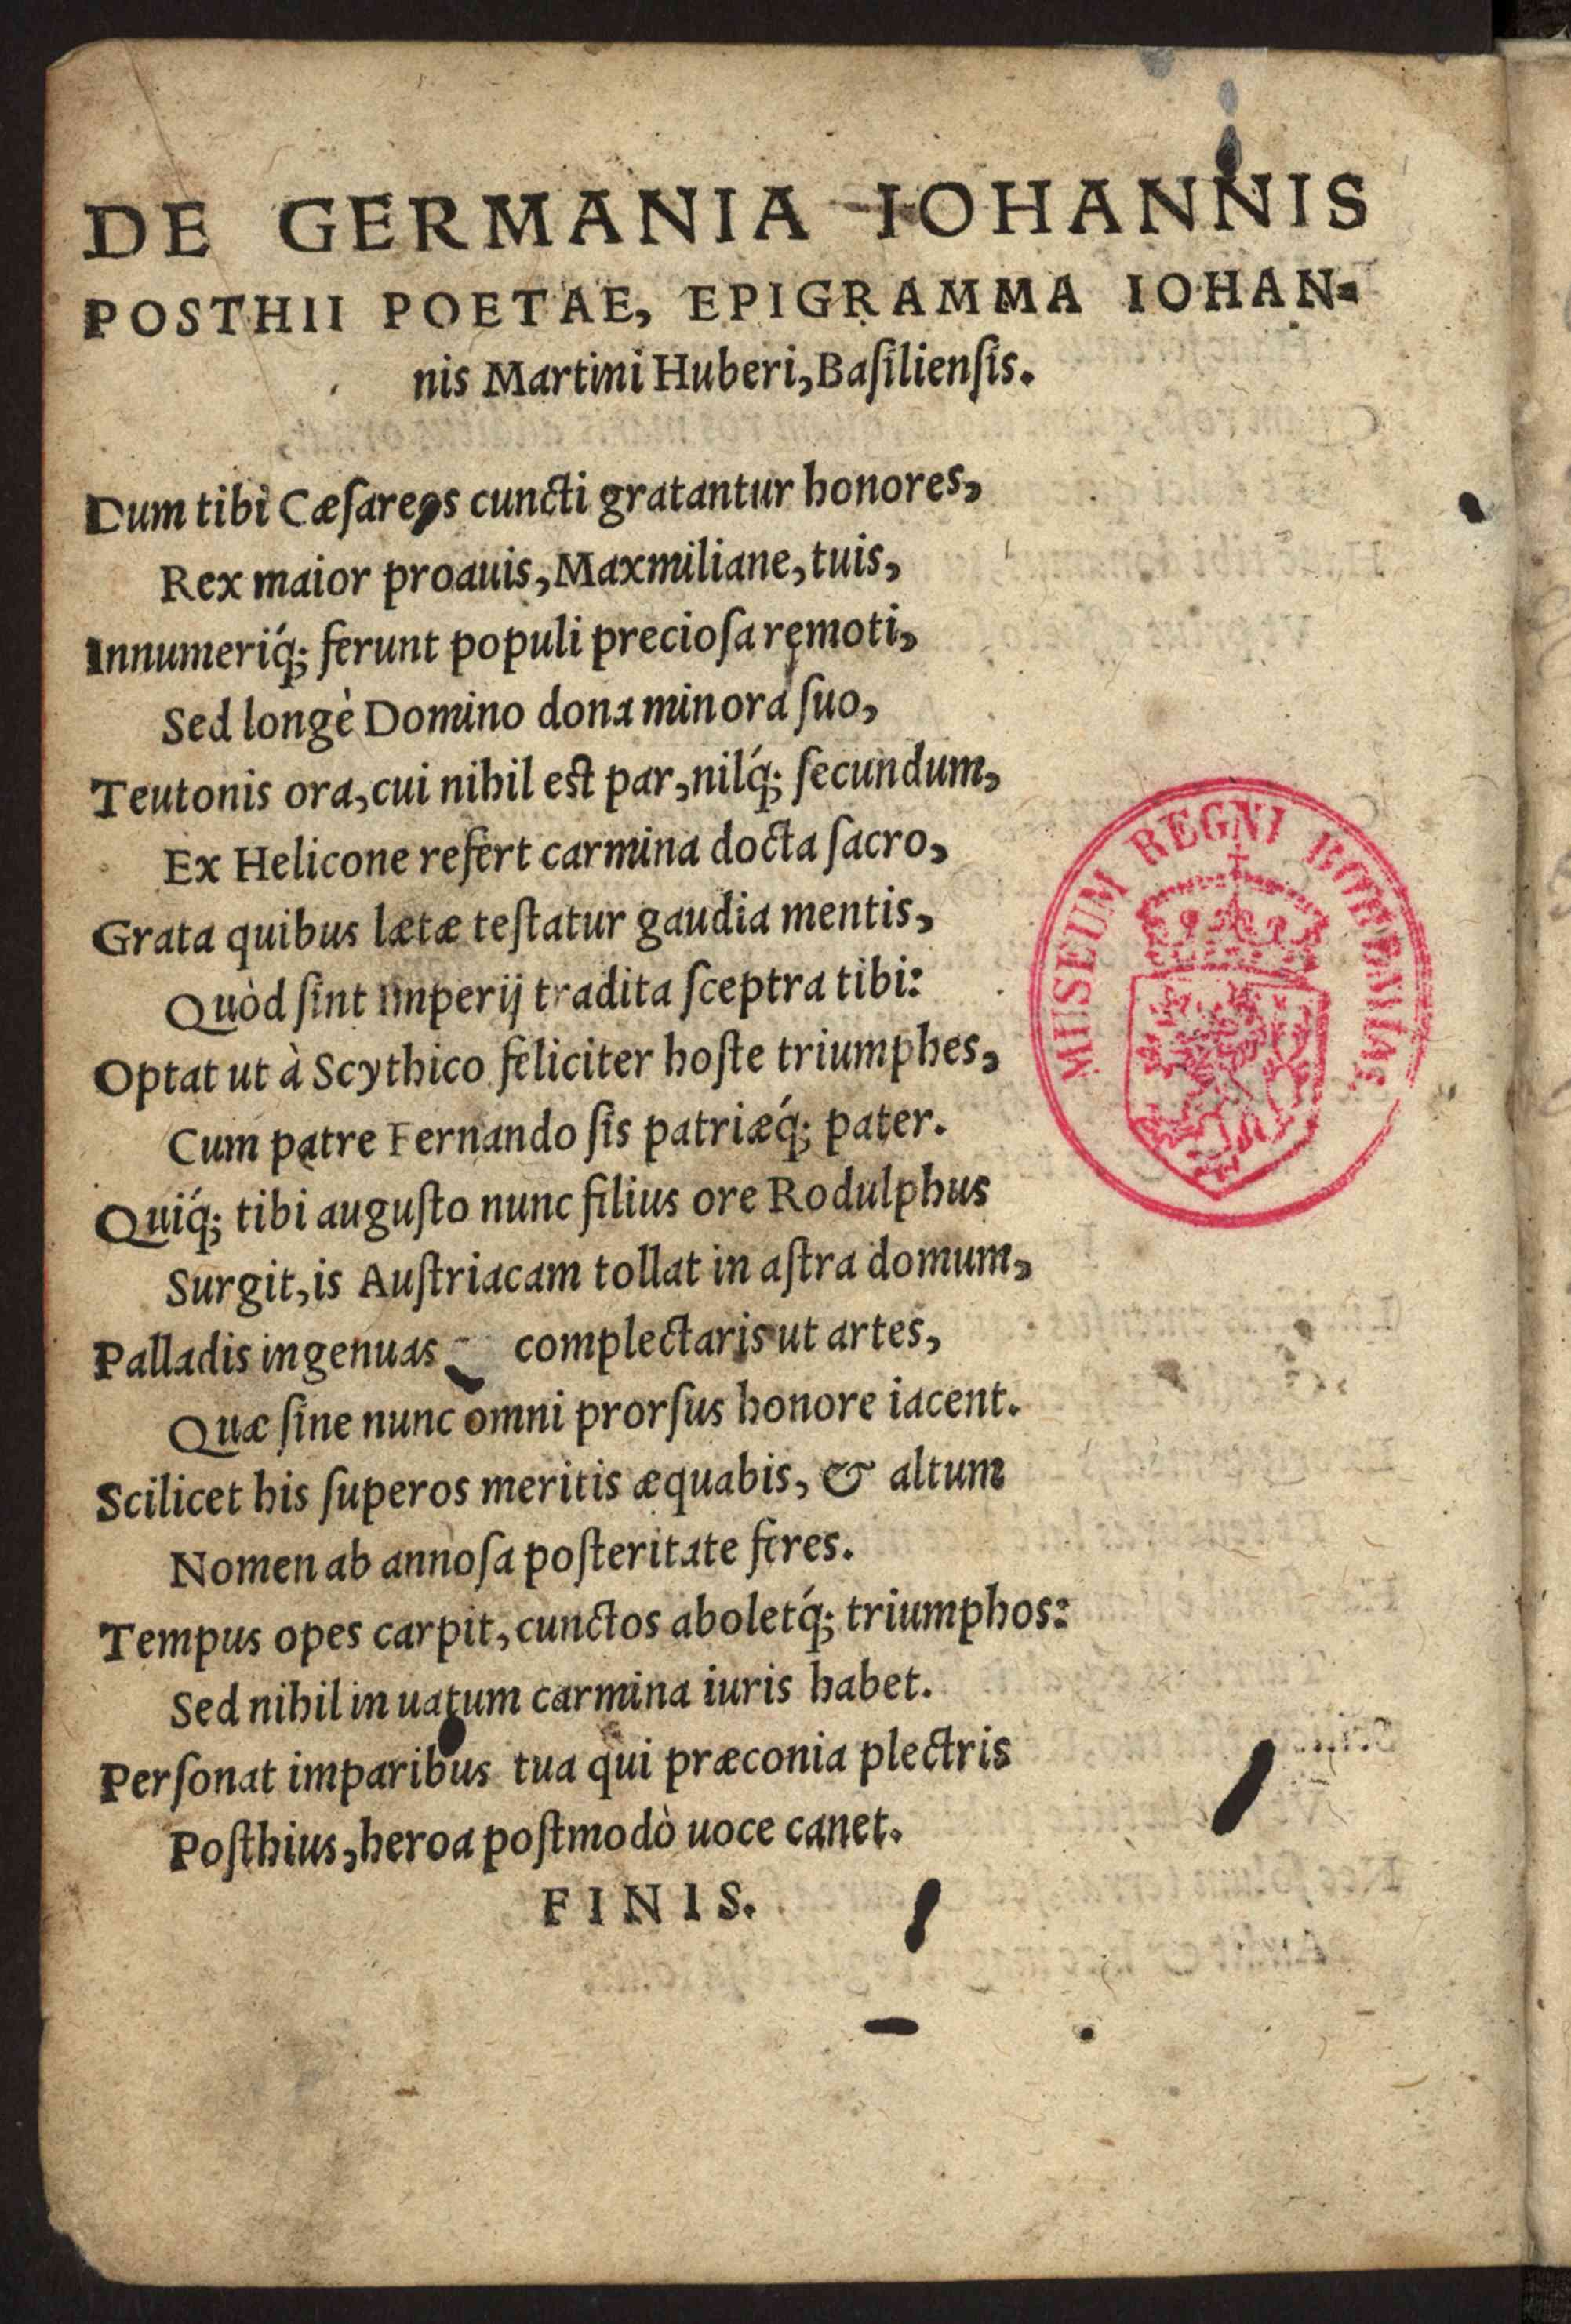 DE GERMANIA IOHANNIS
POSTHII POETAE, EPIGRAMMA IOHAN=
nis Martini Huberi, Baſilienſis.
Dum tibi Cæſareos cuncti gratantur honores,
Rex maior proauis, Maxmiliane, tuis,
Innumeriq́; ferunt populi precioſa remoti,
Sed longè Domino dona minora ſuo,
Teutonis ora, cui nihil est par, nilq́; ſecundum,
Ex Helicone refert carmina docta ſacro,
Grata quibus lætæ teſtatur gaudia mentis,
Quòd ſint imperij tradita ſceptra tibi:
Optat ut à Scythico feliciter hoſte triumphes,
Cum patre Fernando ſis patriæq́; pater.
Quiq́; tibi auguſto nunc filius ore Rodulphus
Surgit, is Auſtriacam tollat in aſtra domum,
Palladis ingenuas complectaris ut artes,
Quæ ſine nunc omni prorſus honore iacent.
Scilicet his ſuperos meritis æquabis, & altum
Nomen ab annoſa poſteritate feres.
Tempus opes carpit, cunctos aboletq́; triumphos:
Sed nihil in uatum carmina iuris habet.
Perſonat imparibus tua qui præconia plectris
Poſthius, heroa poſtmodò uoce canet.
FINIS.
MUSEUM REGNI BOHEMIAE